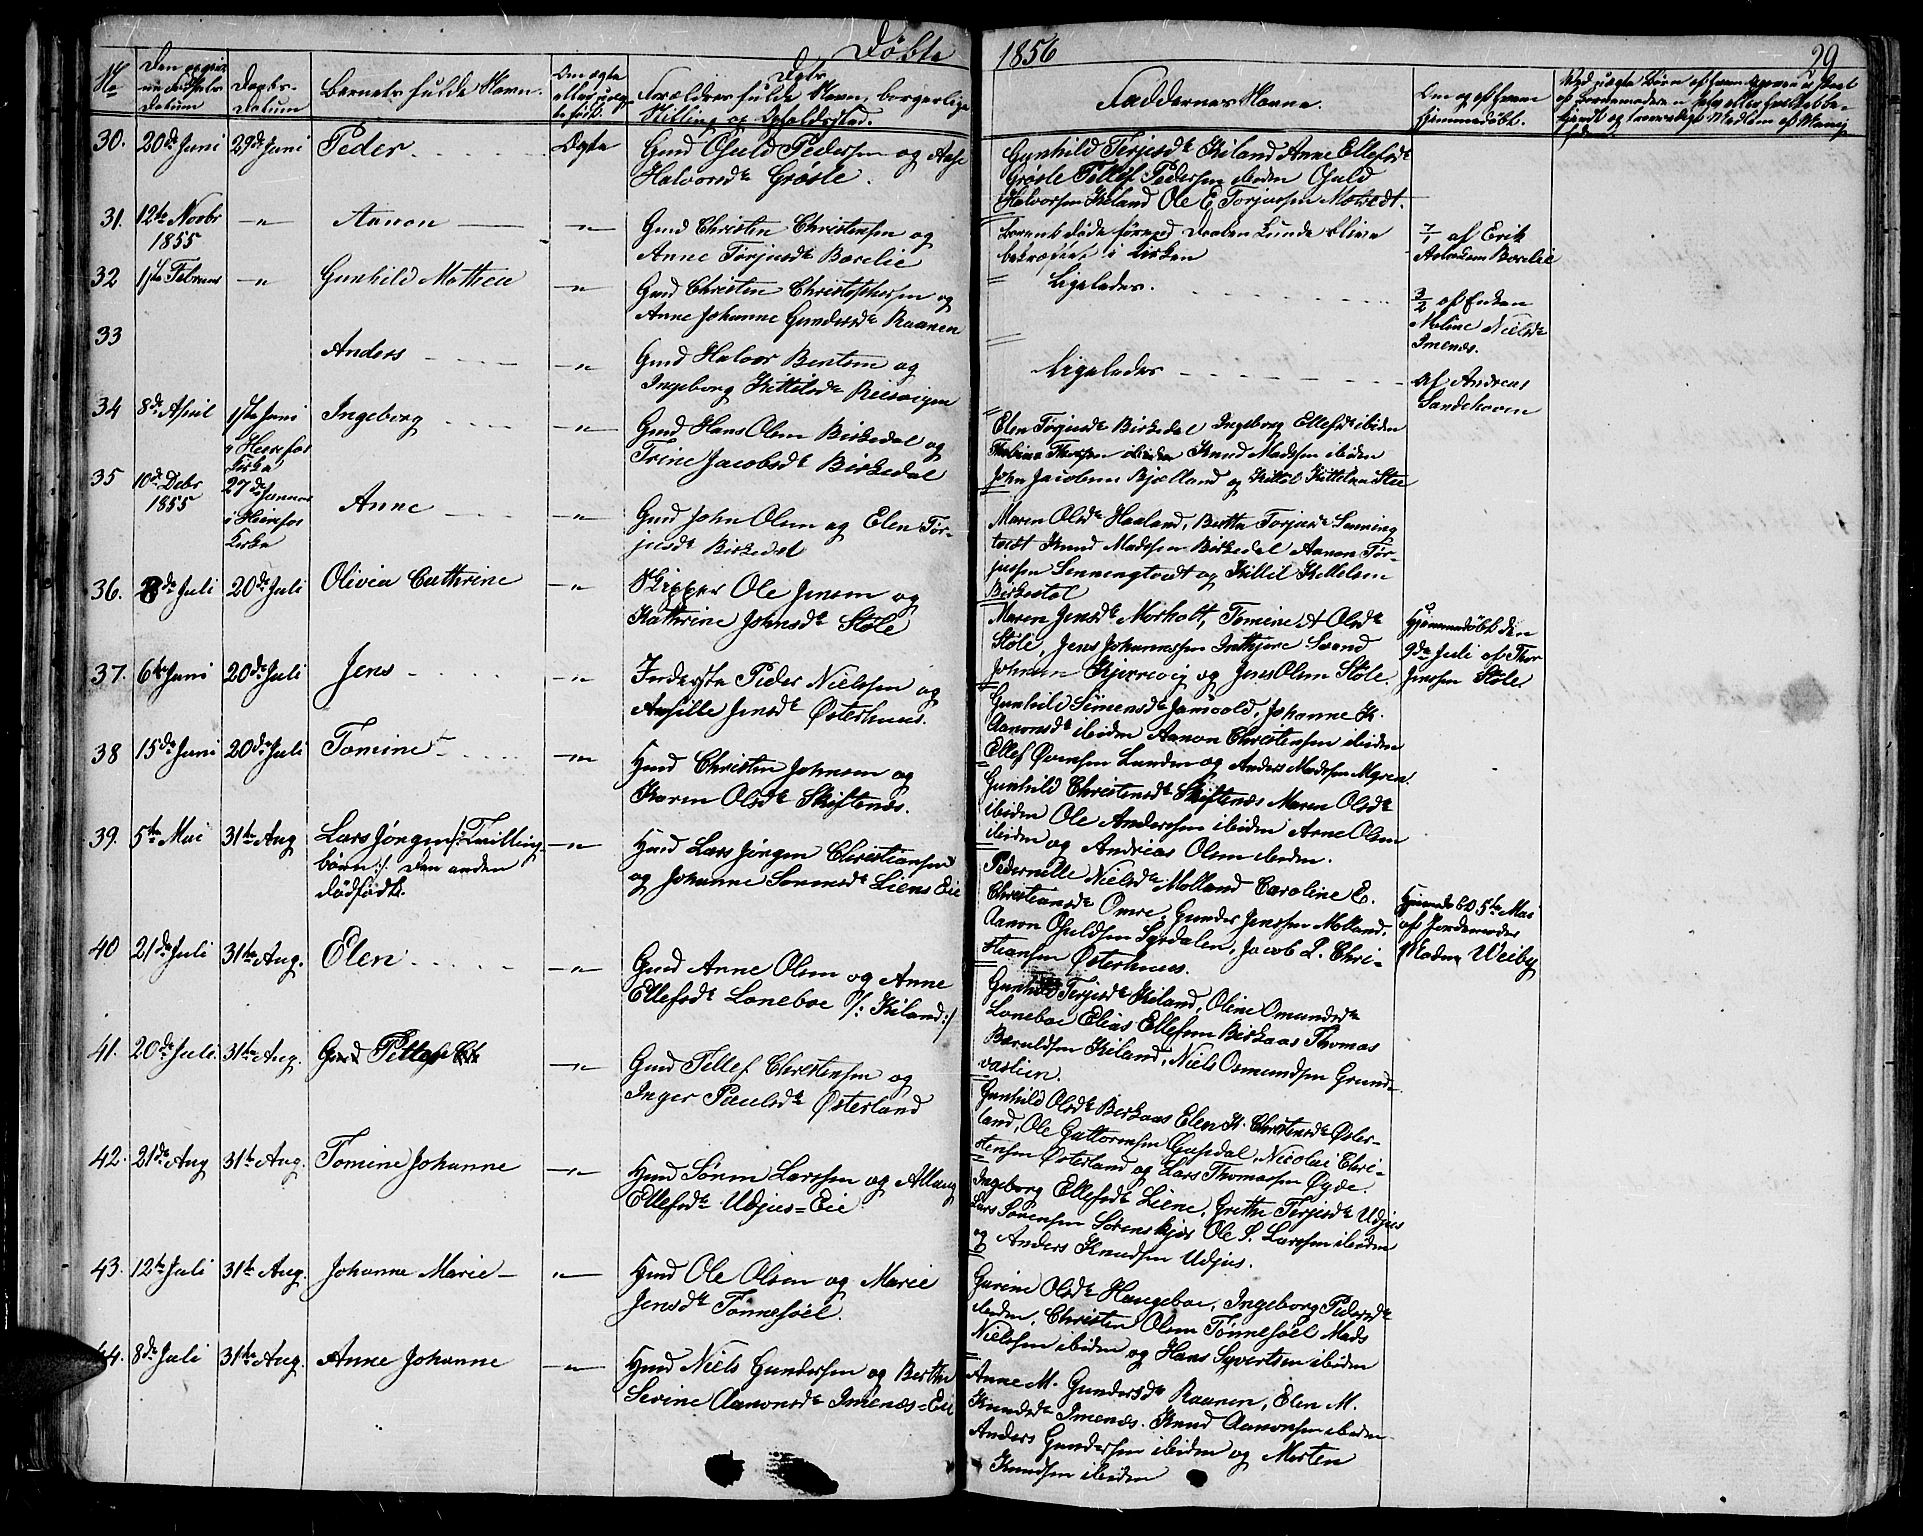 Døbte 1856 29
No
Den opgivne Fødsels Datum
Daabs-Datum
Barnets fulde Navn.
Om ægte eller uægte født.
Forældres fulde Navn, borgerlige Stilling og Opholdssted.
Faddernes Navne.
Om og af hvem hjemmedøbt.
30. 20de Juni 29de Juni Peder Ægte
Gmd Ould Pedersen og Aase
Halvorsdt Grøsle.
Gunhild Terjesdt Kiland Anne Ellefsdt
Grøsle Tellef Pedersen ibiden Ould
Halvorsen Kiland Ole E. Torjussen
31. 12te Novbr 1855 -"- Aanon -"-
Gmd Christen Christensen og
Anne Torjusdt Barelie
Barnet døde førend Daaben kunde blive
bekræftet i Kirken
7/1 af Erik
Barelie
32 1ste Februar -"- Gunhild Mathea -"-
Gmd Christen Christophersen og
Anne Johanne Gundersdt Raanen
Ligeledes.
3/2 af Enken
Maline Nielsdt
Imenæs.
33 Anders -"-
Gmd Halvor Bentsen og
Ingeborg Kittelsdt
Ligeledes
af Andreas
Sandehaven
34 8de April 1ste Juni i Heirefos Kirke Ingeborg -"-
Gmd Hans Olsen Birkedal og
Trine Jacobsdt Birkedal
Elen Torjusdt Birkedal Ingeborg Ellefsdt ibiden
Knud Madsen ibiden
John Jacobsen Bjelland og Kittel Kittelsen
35 10de Debr 1855 27de Januar i Heirefos Kirke Anne -"-
Gmd John Olsen og Elen Tor-
jusdt Birkedal
Maren Olsdt Haaland, Berthe Torjusdt Senning
tvedt Knud Madsen Birkedal Aanon Tor-
jussen Senningtvedt og Kittil Kittelsen
Birkedal
36. 8de Juli 20de Juli Olivia Cathrine -"-
Skipper Ole Jensen og
Kathrine Johnsdt Støle
Maren Jensdt Morholt, Tomine A Olsdt
Støle, Jens Johannesen Inthjore Svend
Johnsen Kjerrevig og Jens Olsen Støle.
Hjemmedøbt den
9de Juli af Thor
Jensen Støle.
37. 6te Juni 20de Juli Jens -"-
Inderste Peder Nielsen og
Jensdt Østerhuus.
Gunhild Simensdt Jamvold, Johanne K.
Aanonsdt ibiden Aanon Christensen ibiden
Ellef Evensen Lunden og Anders Madsen Myren.
38 15de Juni 20de Juli Tomine -"-
Hmd Christen Johnsen og
Karen Olsdt Skiftenæs.
Gunhild Christensdt Skiftenæs Maren Olsdt
ibiden Ole Andersen ibiden Arne Olsen
ibiden og Andreas Olsen ibiden.
39. 5te Mai 31te Aug Lars Jørgen /: Tvilling-
børn :/ den anden
dødfødt. -"-
Hmd Lars Jørgen Christiansen
og Johanne Sørensdt Liens Eie
Pedernille Nielsdt Molland Caroline E.
Christiansdt Omre, Gunder Jensen Molland,
Aanon Ouldsen Syrdalen, Jacob P. Chri-
stiansen Østerhuus.
Hjemmedøbt 5te Mai
af Jordemoder
Madm Weiby
40 21de Juli 31te Aug. Elen -"-
Gmd Anne Olsen og Anne
Ellefsdt Loneboe /: Kiland :/
Gunhild Terjesdt Kiland, Oline Omundsdt
Loneboe Elias Ellefsen Birkaas Thomas
Baruldsen Kiland, Niels Osmundsen Grund-
vaslien.
41. 20de Juli 31te Aug. Tellef -"-
Gmd Tellef Christensen og
Inger Paulsdt Østerland
Gunhild Olsdt Berkaas Elen K. Christensdt Øster-
land, Ole Guttormsen Gusedal, Nicolai Chri-
stensen Østerland og Lars Thomassen Øyde.
42. 21de Aug 31te Aug. Tomine Johanne -"-
Hmd Søren Larsen og Allaug
Ellefsdt Udjus=Eie
Ingeborg Ellefsdt Liene, Grethe Terjesdt Udjus
Lars Sørensen Sørenskjær Ole S. Larsen ibiden
og Anders Knudsen Udjus.
43. 12te Juli 31te Aug. Johanne Marie -"-
Hmd Ole Olsen og Marie
Jensdt Tønnesøel.
Gurine Olsdt Haugeboe, Ingeborg Pedersdt
ibiden, Christen Olsen Tønnesøel Mads
Nielsen ibiden og Hans Syvertsen ibiden
44. 8de Juli 31te Aug. Anne Johanne -"-
Hmd Niels Gundersen og Berthe
Serine Aanonsdt Imenæs=Eie
Anne M. Gundersdt Raanen, Elen M.
Knudsdt Imenæs. Knud Aanonsen ibiden
Anders Gundersen ibiden og Morten
Knudsen ibiden